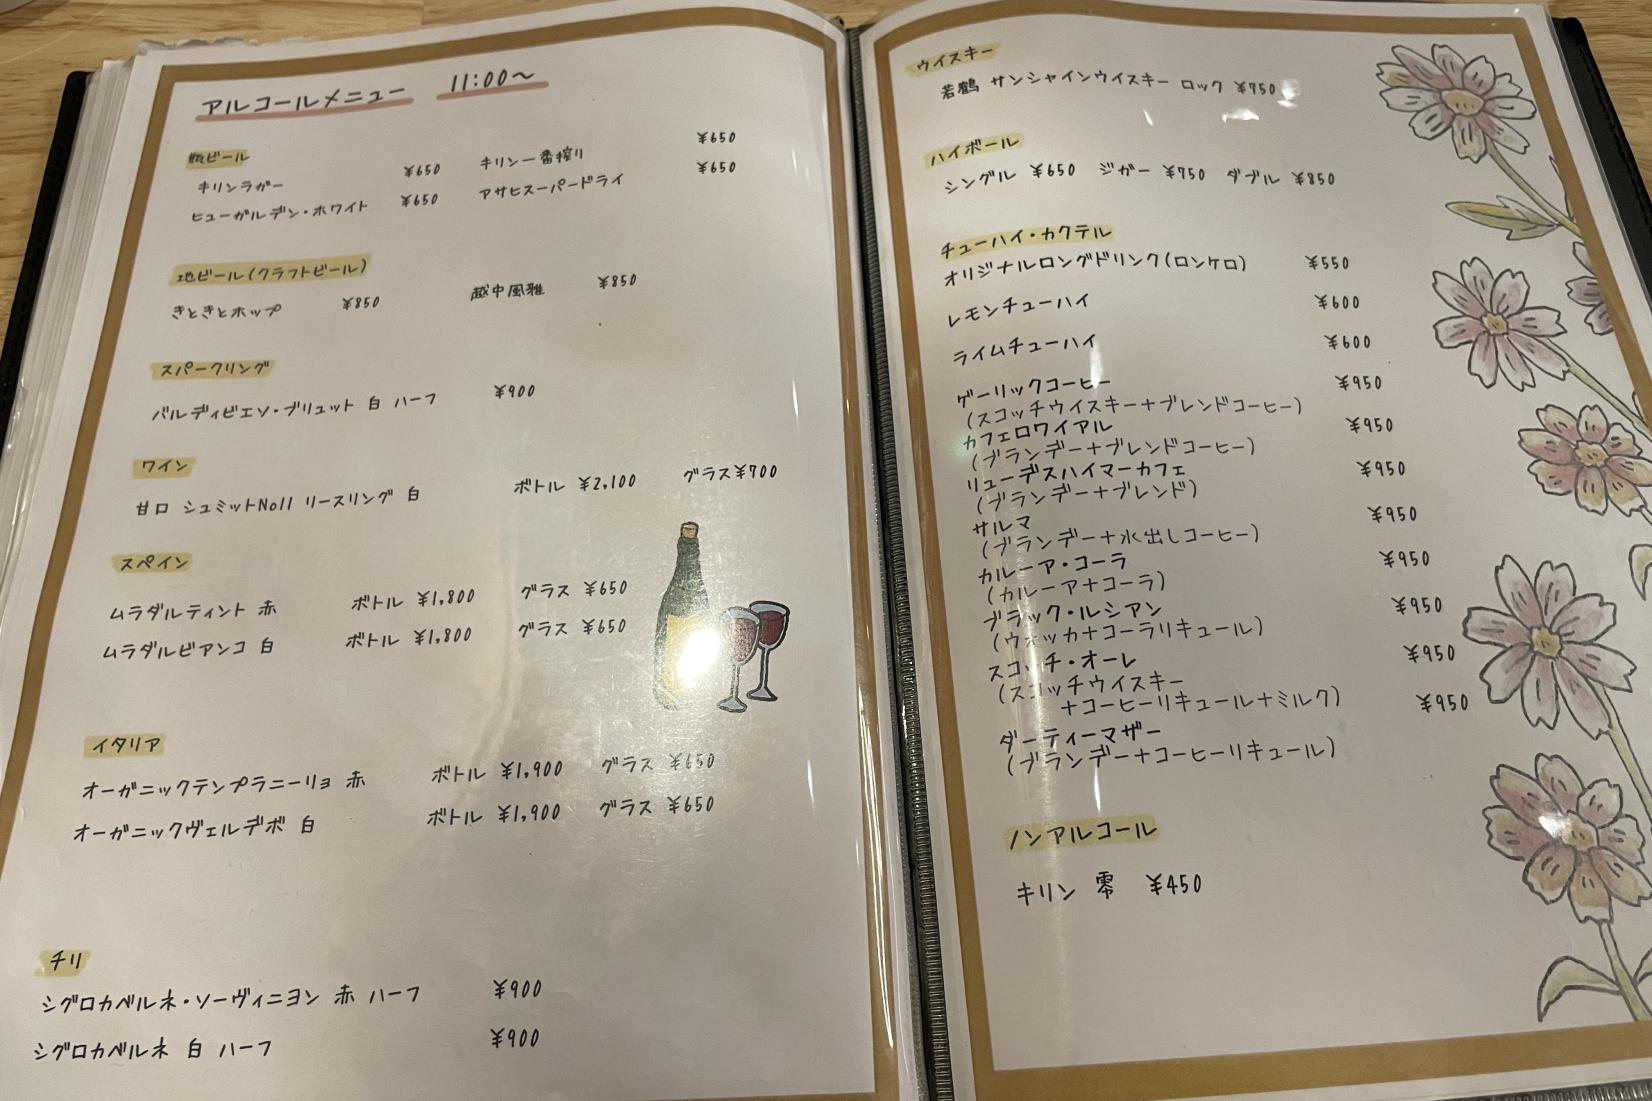 アルコールメニュー 11:00〜
瓶ビール
キリンラガー ¥650 キリン一番搾り ¥650
ヒューガルデン・ホワイト ¥650 アサヒスーパードライ ¥650
地ビール(クラフトビール)
きときとホップ ¥850 越中風雅 ¥850
スパークリング
バルディビエソ・ブリュット 白 ハーフ ¥900
ワイン
甘口 シュミットNo11 リースリング 白 ボトル ¥2,100 グラス¥700
スペイン
ムラダルティント 赤 ボトル ¥1,800 グラス ¥650
ムラダルビアンコ 白 ボトル ¥1,800 グラス ¥650
イタリア
オーガニックテンプラニーリョ 赤 ボトル ¥1,900 グラス ¥650
オーガニックヴェルデボ 白 ボトル ¥1,900 グラス ¥650
チリ
シグロカベルネ・ソーヴィニヨン 赤 ハーフ ¥900
シグロカベルネ 白 ハーフ ¥900
ウイスキー
若鶴 サンシャインウイスキー ロック ¥750
ハイボール
シングル ¥650 ジガー ¥750 ダブル ¥850
チューハイ・カクテル
オリジナルロングドリンク(ロンケロ) ¥550
レモンチューハイ ¥600
ライムチューハイ ¥600
ゲーリックコーヒー ¥950
(スコッチウイスキー+ブレンドコーヒー)
カフェロワイアル ¥950
(ブランデー+ブレンドコーヒー)
リューデスハイマーカフェ ¥950
(ブランデー+ブレンド)
サルマ ¥950
(ブランデー+水出しコーヒー)
カルーア・コーラ ¥950
(カルーア+コーラ)
ブラック・ルシアン ¥950
(ウォッカ+コーラリキュール)
スコッチ・オーレ ¥950
(スコッチウイスキー
+コーヒーリキュール+ミルク)
ダーティーマザー ¥950
(ブランデー+コーヒーリキュール)
ノンアルコール
キリン 零 ¥450